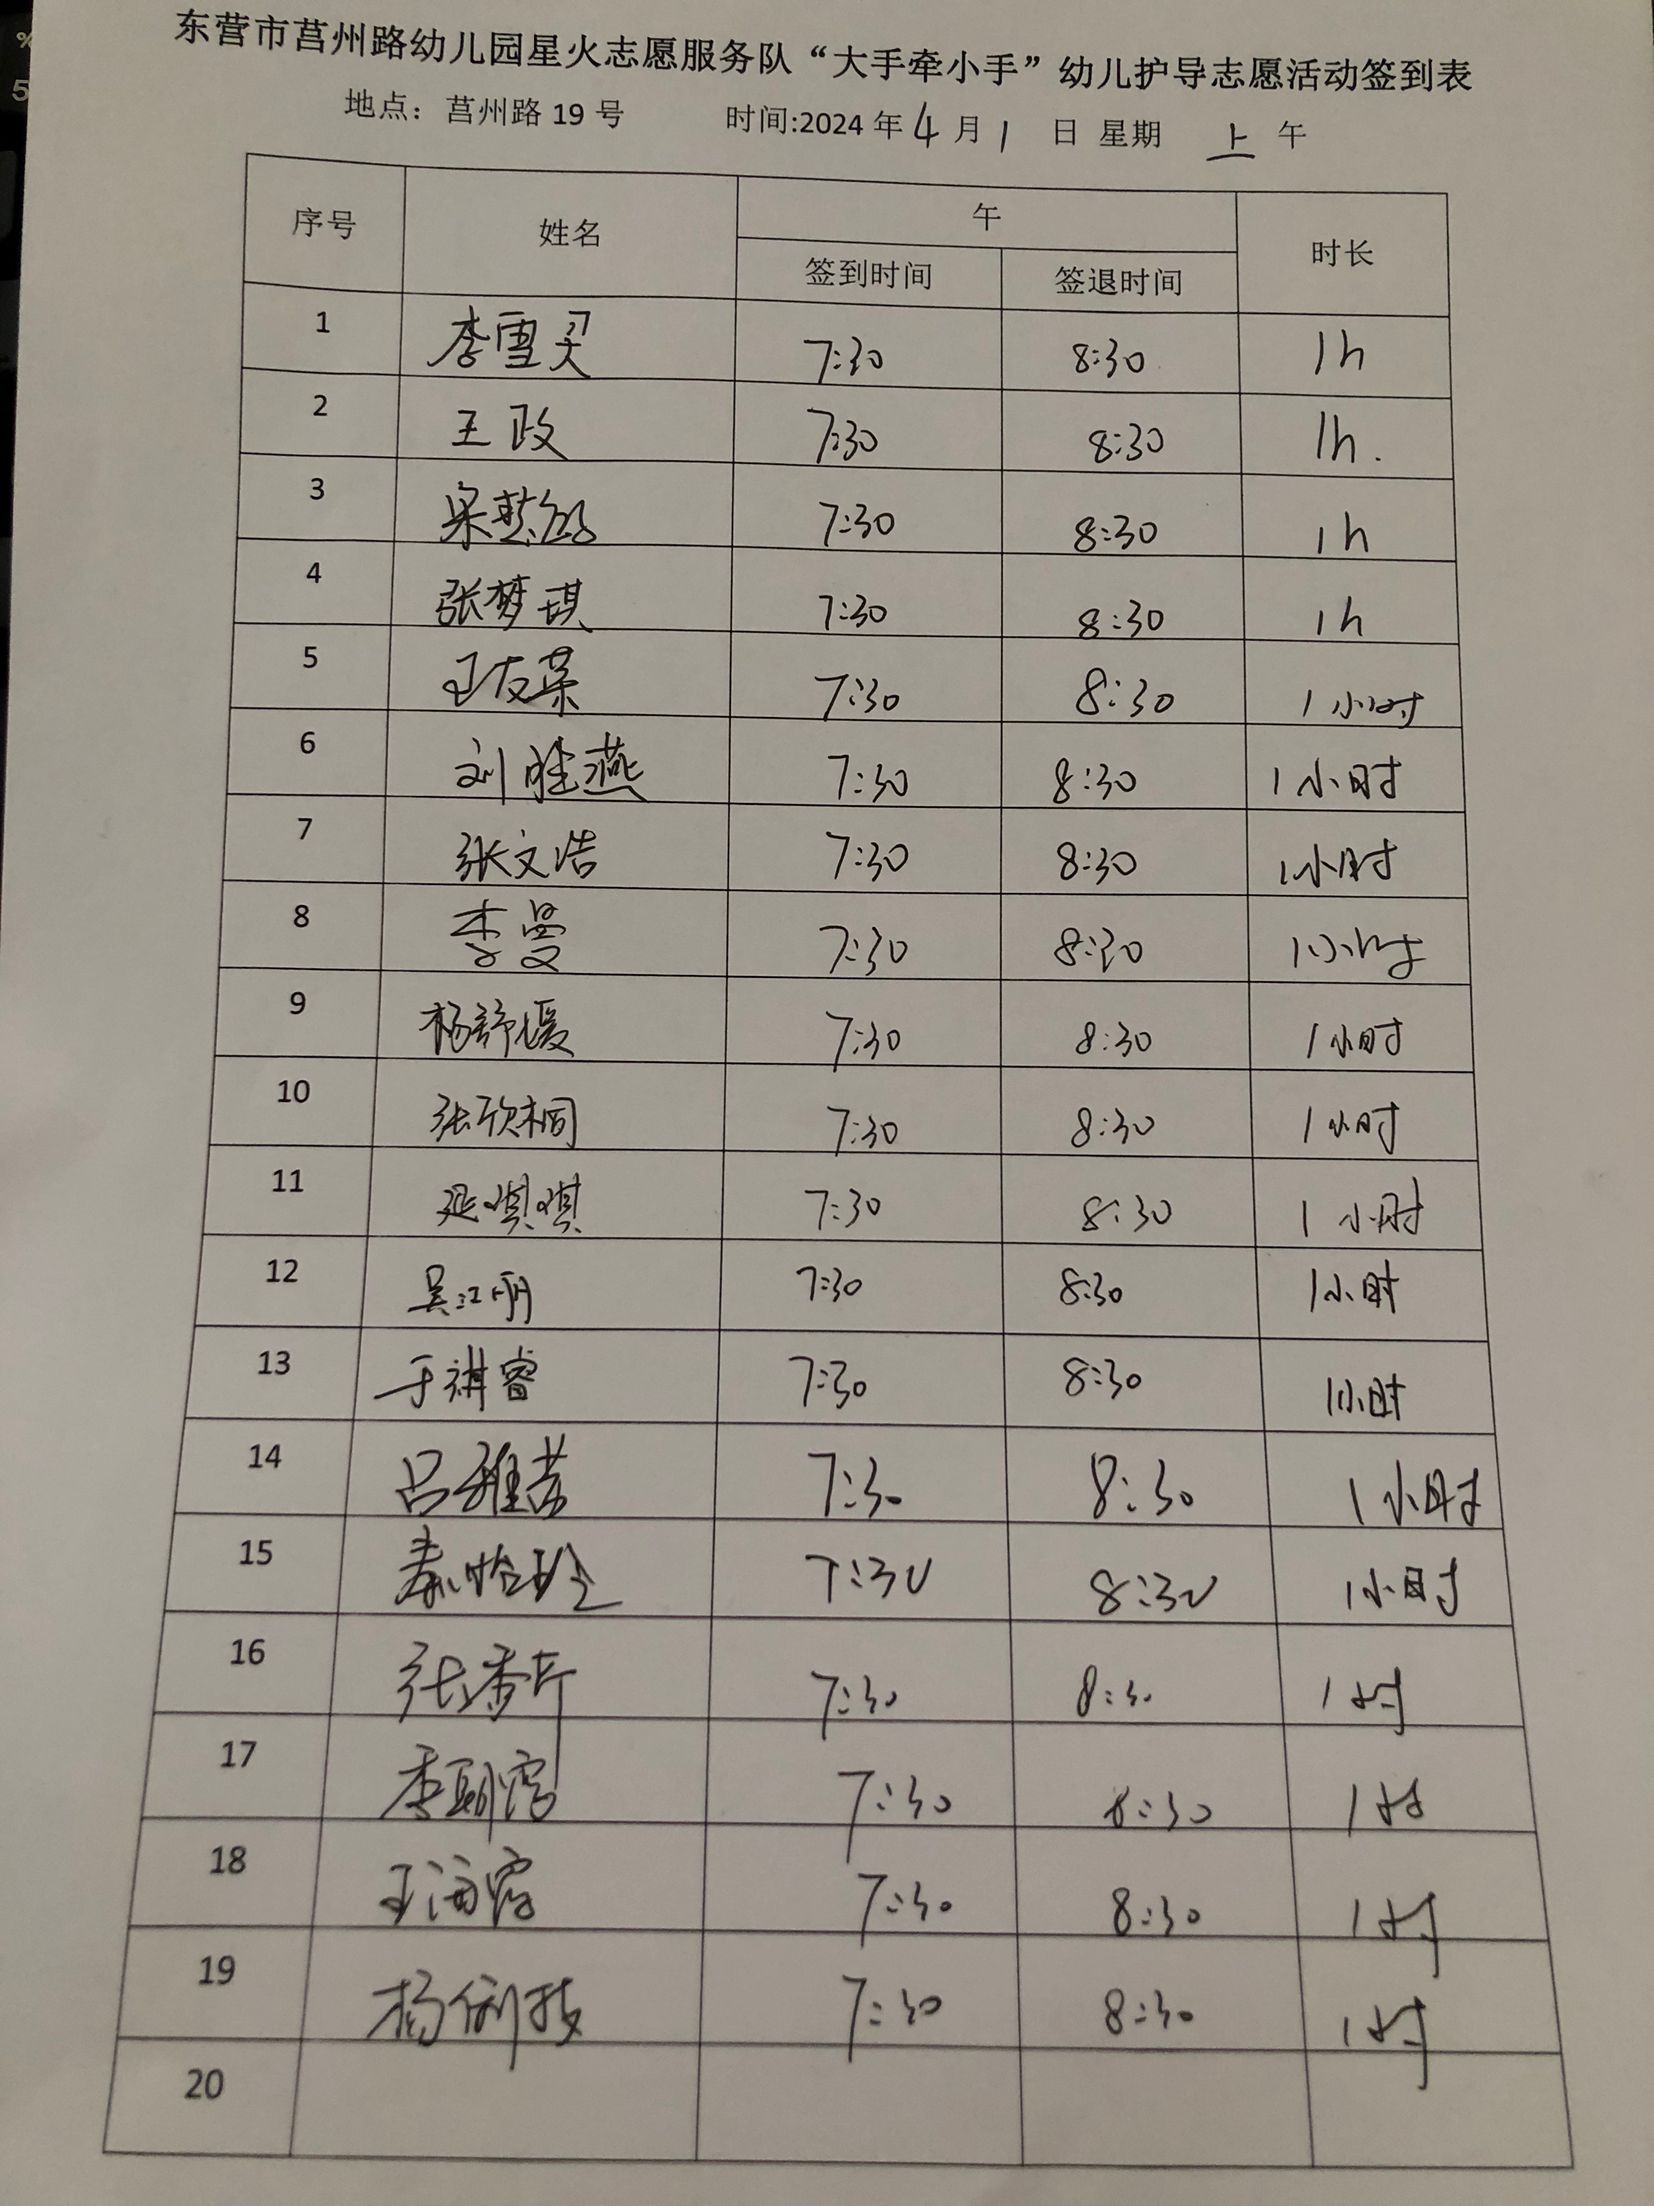 东营市莒州路幼儿园星火志愿服务队“大手牵小手”幼儿护导志愿活动签到表
地点：莒州路 19 号 时间:2024 年 4 月 1 日 星期 上 午
序号 姓名 午 时长
签到时间 签退时间
1 李雪 7:30 8:30 1h
2 王政 7:30 8:30 1h.
3 7:30 8:30 1h
4 张梦琪 7:30 8:30 1h
5 王友荣 7:30 8:30 1小时
6 刘胜燕 7:30 8:30 1小时
7 张文浩 7:30 8:30 1小时
8 李曼 7:30 8:30 1小时
9 杨舒媛 7:30 8:30 1小时
10 张欣桐 7:30 8:30 1小时
11 延琪琪 7:30 8:30 1小时
12 吴江丽 7:30 8:30 1小时
13 于祺睿 7:30 8:30 1小时
14 吕雅芸 7:30 8:30 1小时
15 秦怡玲 7:30 8:30 1小时
16 张秀 7:30 8:30 1时
17 李 7:30 8:30 1时
18 王海 7:30 8:30 1时
19 杨 7:30 8:30 1时
20